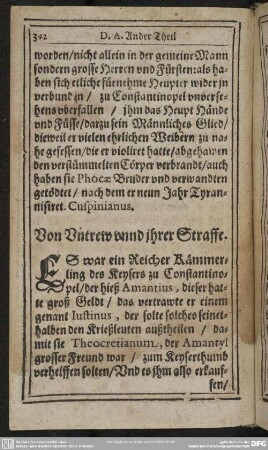 342
D. A. Ander Theil
worden/nicht allein in der gemeine Mann
sondern grosse Herren vnd Fürsten: als ha-
ben sich etliche fürnehme Heupter wider jn
verbund n / zu Constantinopel vnverse-
hens vberfallen / ihm das Heupt Hände
vnd Füsse/darzu sein Männliches Glied/
dieweil er vielen ehrlichen Weibern zu na-
he gesessen/die er violiret hatte/abgehawen
den verstümmelten Cörper verbrandt/auch
haben sie Phocæ Bruder vnd verwandten
getödtet/ nach dem er neun Jahr Tyran-
nisiret. Cuspinianus.
Von Vntrew vnnd jhrer Straffe.
ES war ein Reicher Kämmer-
ling des Keysers zu Constantino-
pel/der hieß Amantius, dieser hat-
te groß Geldt / das vertrawte er einem
genant Iustinus, der solte solches seinet-
halben den Krießleuten außtheilen / da-
mit sie Theocretianum, der Amantyl
grosser Freund war / zum Keyserthumb
verhelffen solten/ Vnd es ihm also erkauf-
fen/